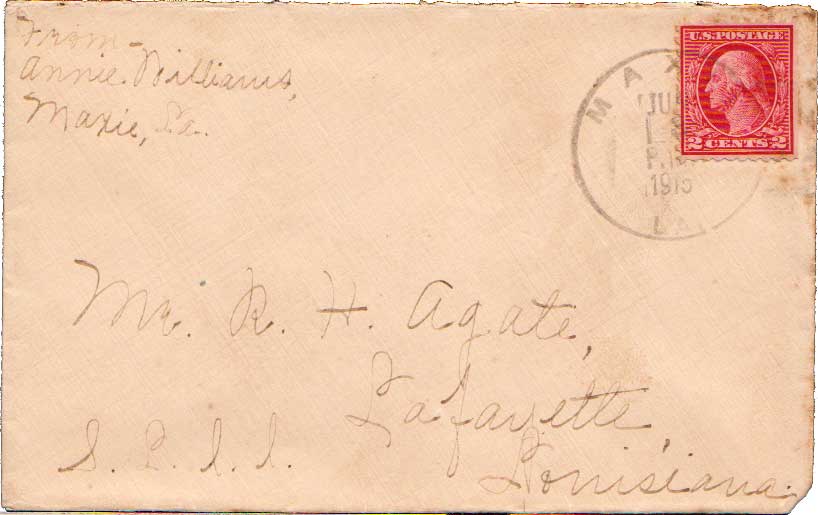 From-
Annie Williams,
Maxie, La.
U.S. POSTAGE
2 CENTS 2
MAX
P.M
1915
LA
Mr. R. H. Agate,
Lafayette,
S. L. I. I.
Louisiana.